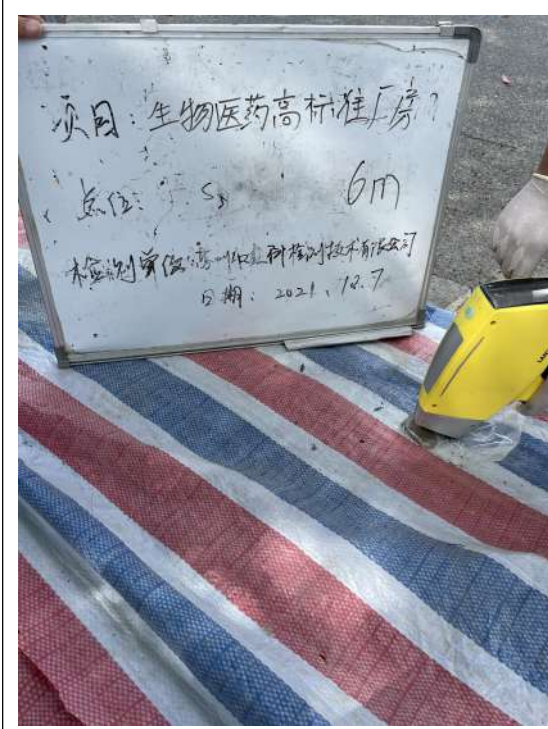 项目：生物医药高标准厂房
点位： S3 6m
检测单位：科检测技术有限公司
日期：2021.12.7